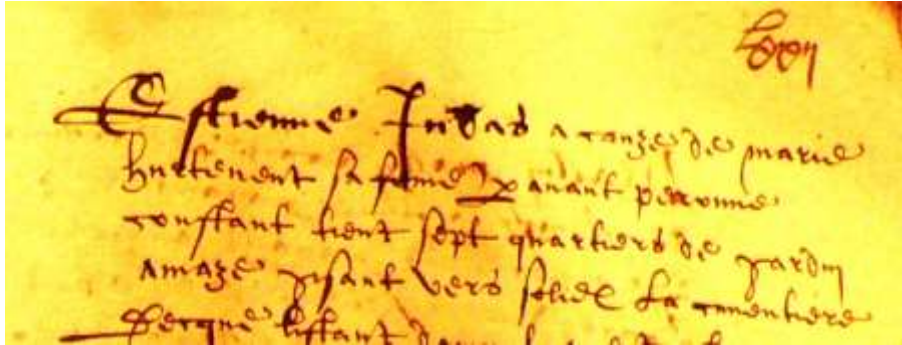 lxxii
Estienne Judas a cauze de marie
hurtevent sa feme paravant peronne
constant tient sept quartiers de jardin
amaze gisant vers soliel la cimentiere
Becque listant